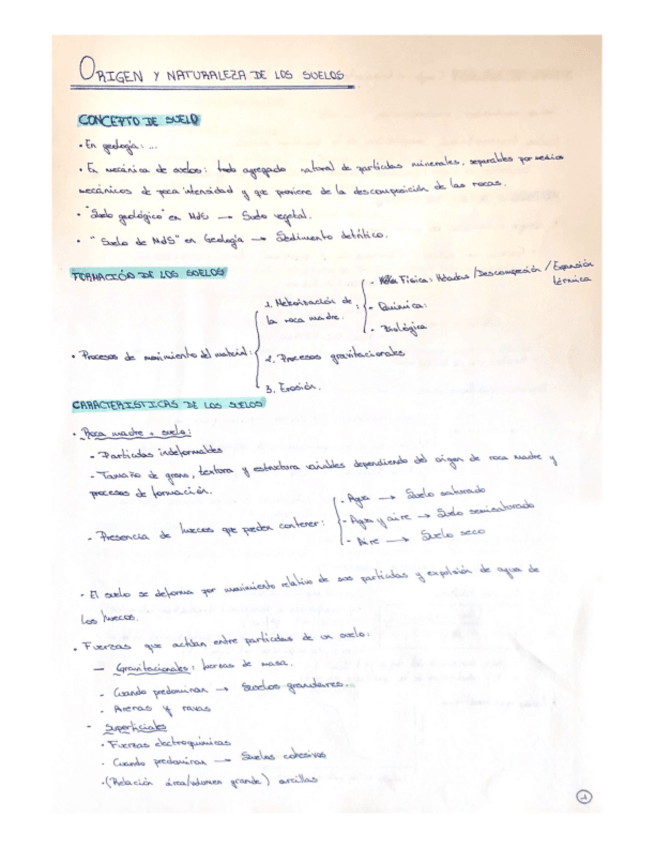 ORIGEN Y NATURALEZA DE LOS SUELOS
CONCEPTO DE SUELO
• En geología: ...
• En mecánica de suelos: todo agregado natural de partículas minerales, separables por medios
mecánicos de poca intensidad y que proviene de la descomposición de las rocas.
• "Suelo geológico" en MdS → Suelo vegetal.
• "Suelo de MdS" en Geología → Sedimento detrítico.
FORMACIÓN DE LOS SUELOS
• Procesos de movimiento del material:
1. Meteorización de
la roca madre. :
- Física: Heladas / Descompresión / Expansión
térmica
- Química:
- Biológica
2. Procesos gravitacionales
3. Erosión.
CARACTERISTICAS DE LOS SUELOS
• Roca madre + suelo:
- Partículas indeformables
- Tamaño de grano, textura y estructura variables dependiendo del origen de roca madre y
procesos de formación.
- Presencia de huecos que pueden contener:
- Agua → Suelo saturado
- Agua y aire → Suelo semisaturado
- Aire → Suelo seco
- El suelo se deforma por movimiento relativo de sus partículas y expulsión de agua de
los huecos.
• Fuerzas que actúan entre partículas de un suelo:
— Gravitacionales: fuerzas de masa.
- Cuando predominan → Suelos granulares.
- Arenas y gravas
- Superficiales
• Fuerzas electroquímicas
• Cuando predominan → Suelos cohesivos
• (Relación área/volumen grande) arcillas
1